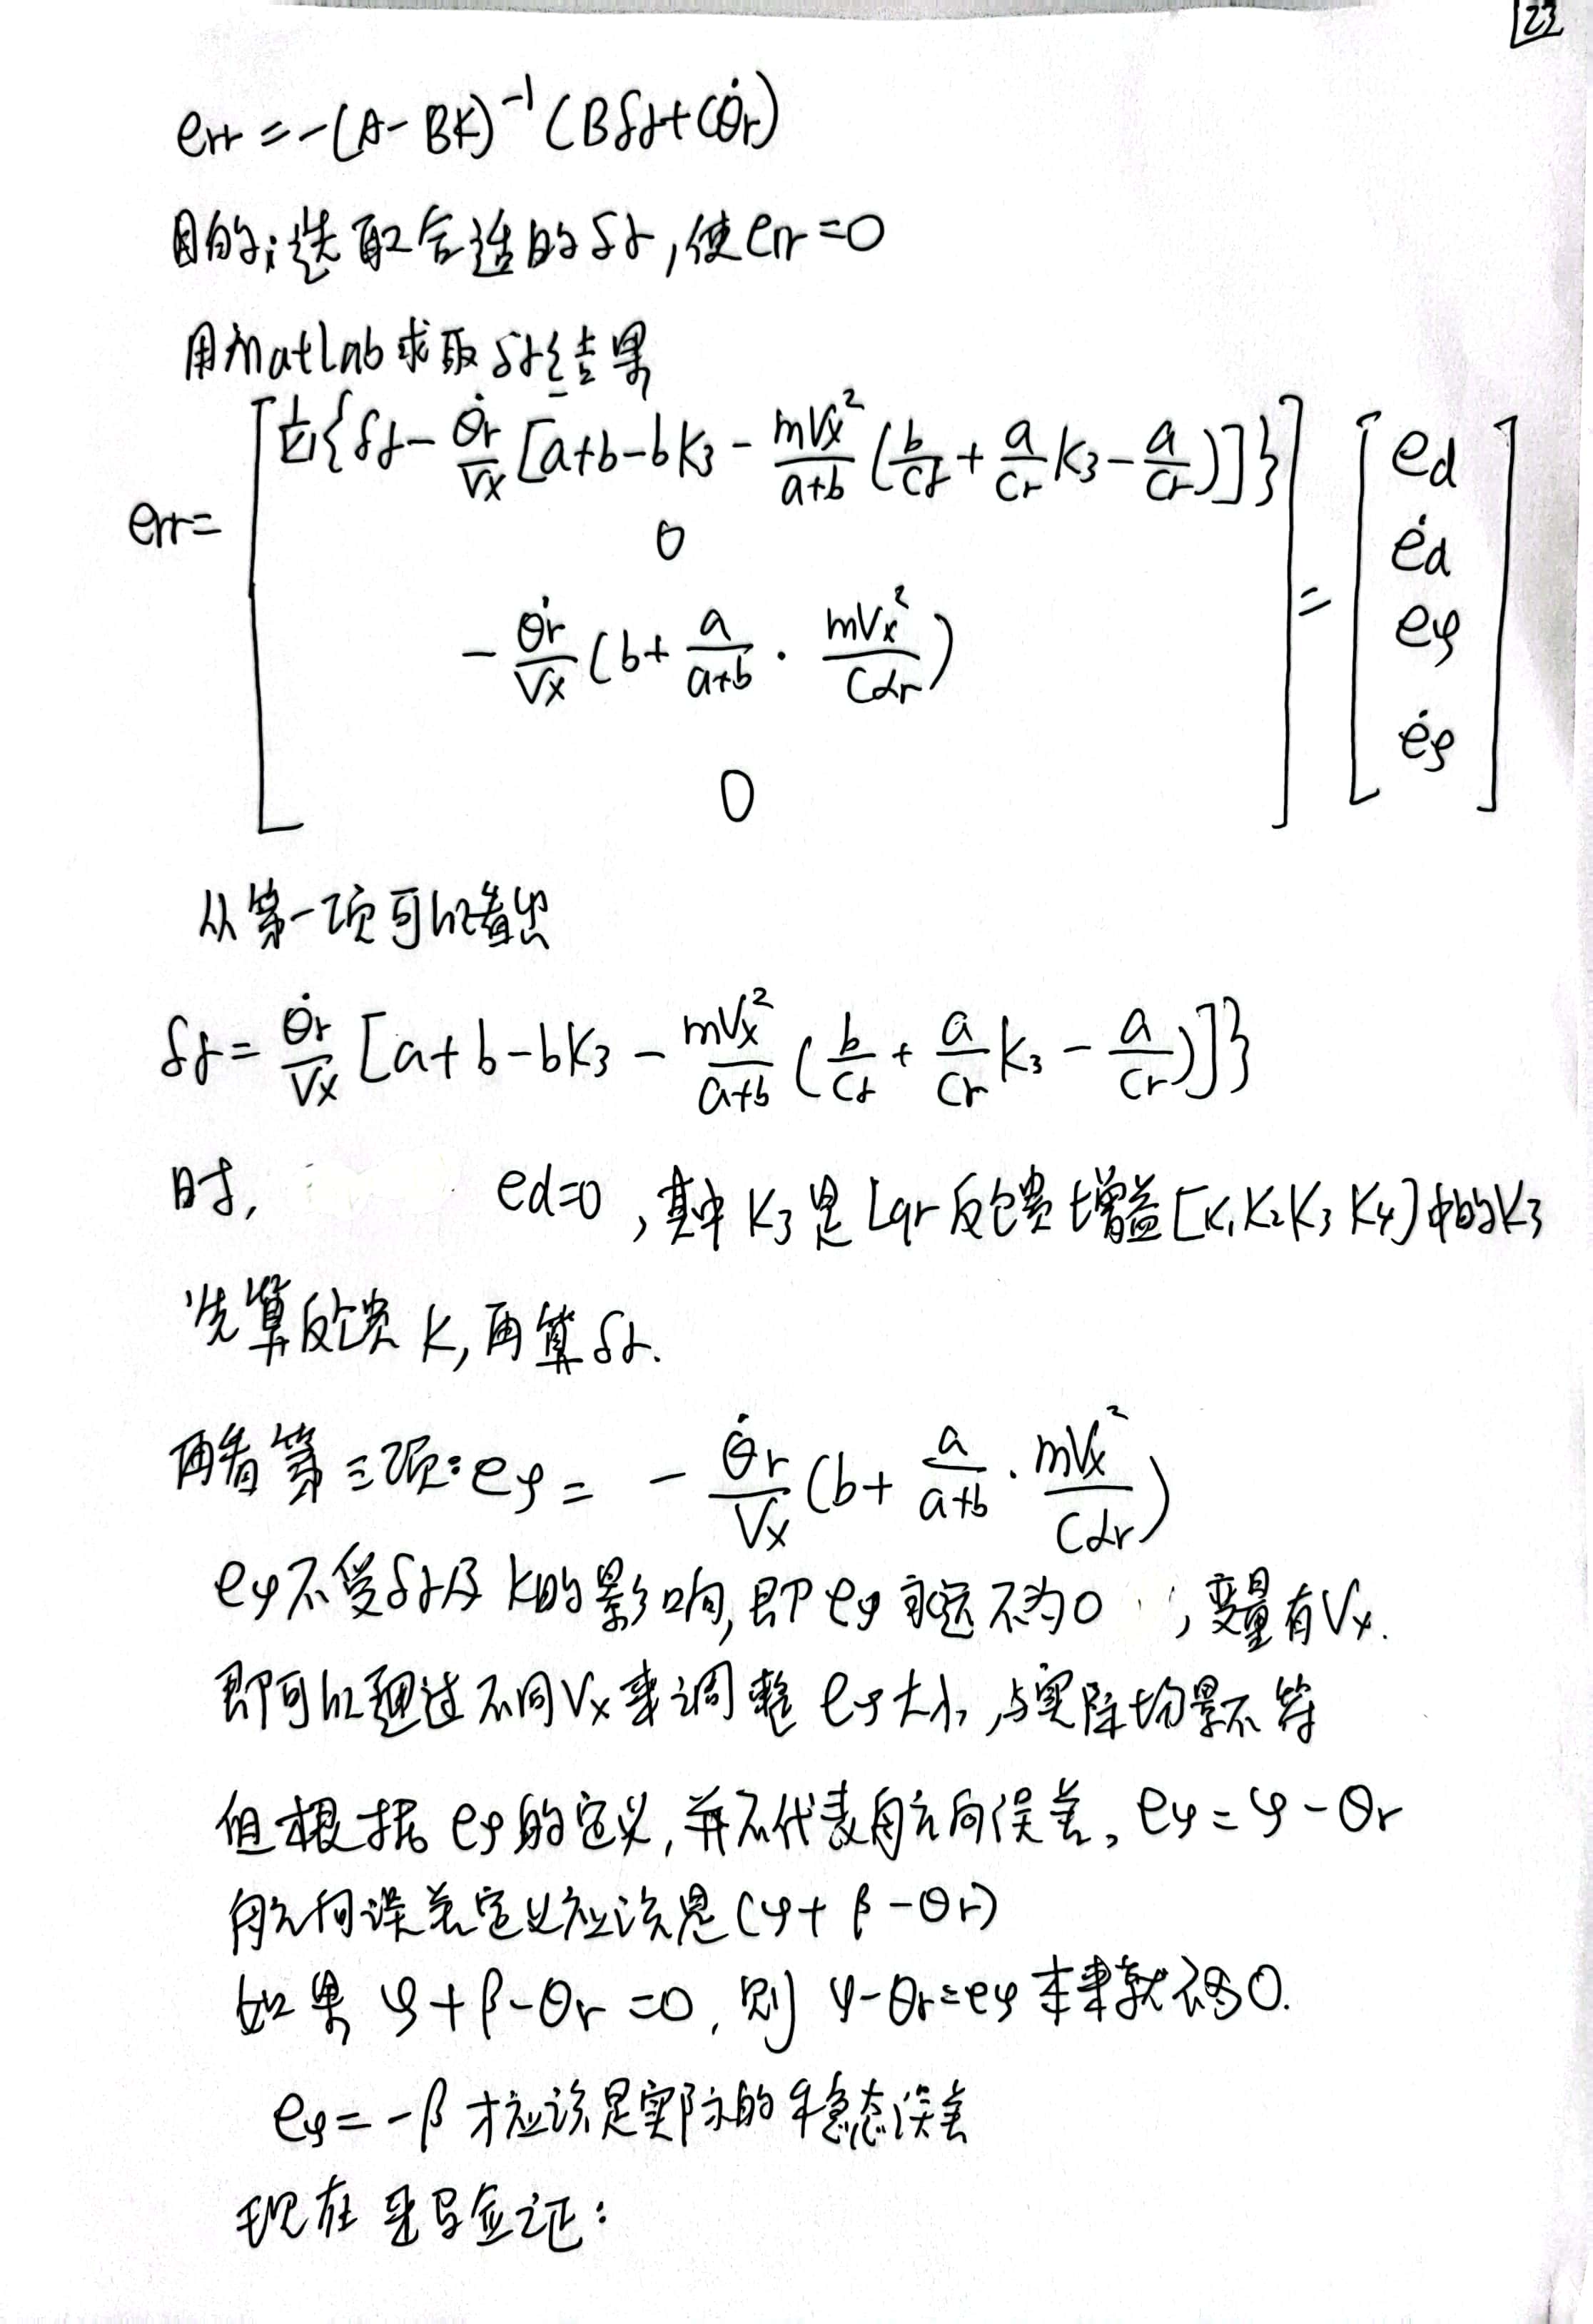 23
err = -(A-BK)⁻¹(Bδf+Cθ̇r)
目的:选取合适的δf,使err=0
用Matlab求取δf结果
err= [ 1/k1{δf - θ̇r/Vx[a+b-bk3 - mVx²/(a+b)(b/Cf + a/Cr k3 - a/Cr)]} ; 0 ; -θ̇r/Vx(b + a/(a+b) · mVx²/Cαr) ; 0 ] = [ ed ; ėd ; eφ ; ėφ ]
从第一项可以看出
δf = θ̇r/Vx [a+b-bk3 - mVx²/(a+b) (b/Cf + a/Cr k3 - a/Cr)]}
时, ed=0 ,其中K3是Lqr反馈增益[K1 K2 K3 K4]中的K3
先算反馈K,再算δf.
再看第三项:eφ = -θ̇r/Vx(b + a/(a+b) · mVx²/Cαr)
eφ不受δf及K的影响,即eφ永远不为0 ,变量有Vx.
即可以通过不同Vx来调整eφ大小,与实际场景不符
但根据eφ的定义,并不代表航向误差。eφ=φ-θr
航向误差定义应该是(φ+β-θr)
如果 φ+β-θr=0,则 φ-θr=eφ本来就不为0.
eφ=-β才应该是实际的稳态误差
现在来验证: